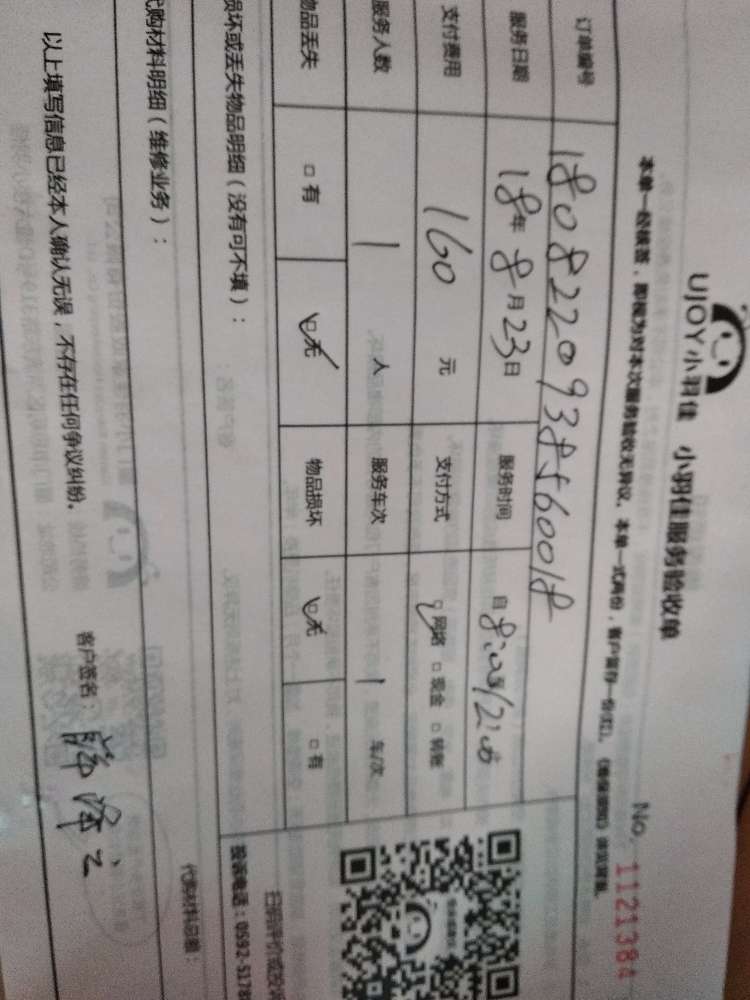 UJOY小羽佳 小羽佳服务验收单
No. 1121384
本单一经核签，即视为对本次服务验收无异议。本单一式两份，客户留存一份
订单编号 1808220938560018
服务日期 18年 8月23日 服务时间
支付费用 160 元 支付方式 网络 □ 现金 □ 转账
服务人数 1 人 服务车次 1 车/次
物品丢失 □ 有 无 物品损坏 无 □ 有
损坏或丢失物品明细（没有可不填）：
投诉电话：0592-5178
代购材料明细（维修业务）：
代购材料总额：
以上填写信息已经本人确认无误，不存在任何争议纠纷。
客户签名：